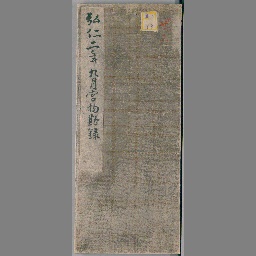 弘仁二年九月官物勘録